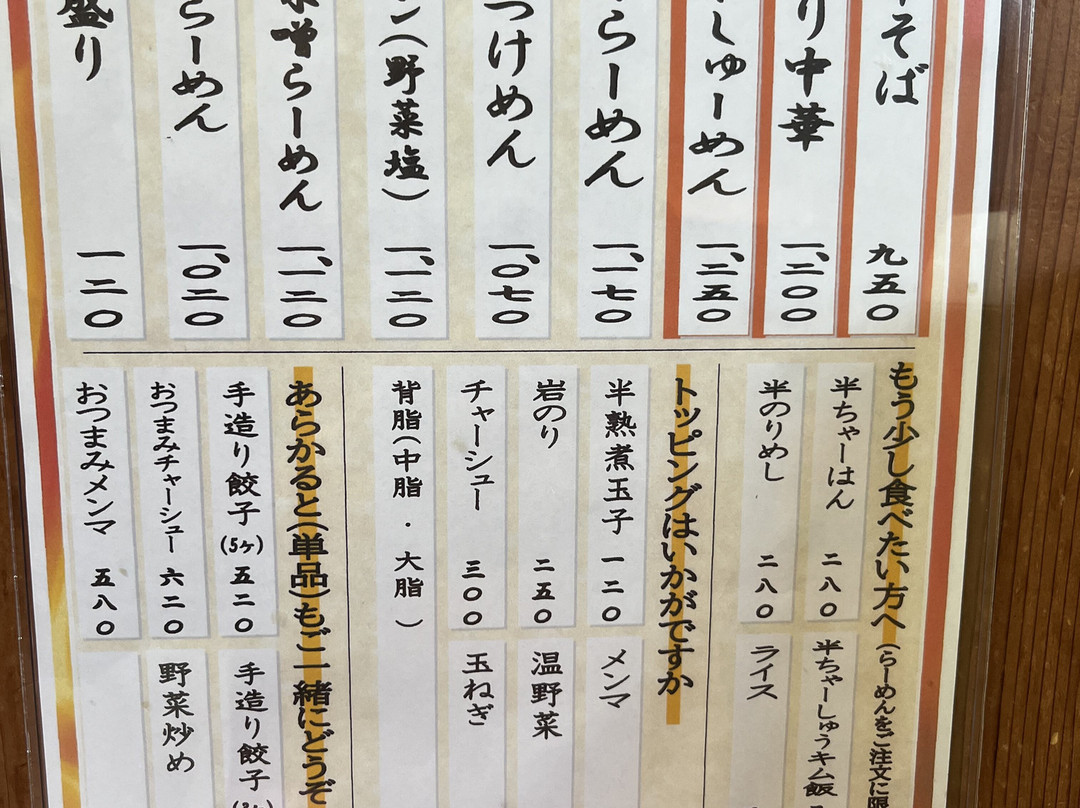 そば 九五〇
り中華 一、二〇〇
しゅーめん 一、二五〇
らーめん 一、一七〇
つけめん 一、〇七〇
ン(野菜塩) 一、一二〇
噌らーめん 一、一二〇
らーめん 一、〇二〇
盛り 一二〇
もう少し食べたい方へ(らーめんをご注文に限
半ちゃーはん 二八〇
半ちゃーしゅうキム飯
半のりめし 二八〇
ライス
トッピングはいかがですか
半熟煮玉子 一二〇
メンマ
岩のり 二五〇
温野菜
チャーシュー 三〇〇
玉ねぎ
背脂(中脂・大脂)
あらかると(単品)もご一緒にどうぞ
手造り餃子(5ヶ) 五二〇
手造り餃子
おつまみチャーシュー 六二〇
野菜炒め
おつまみメンマ 五八〇